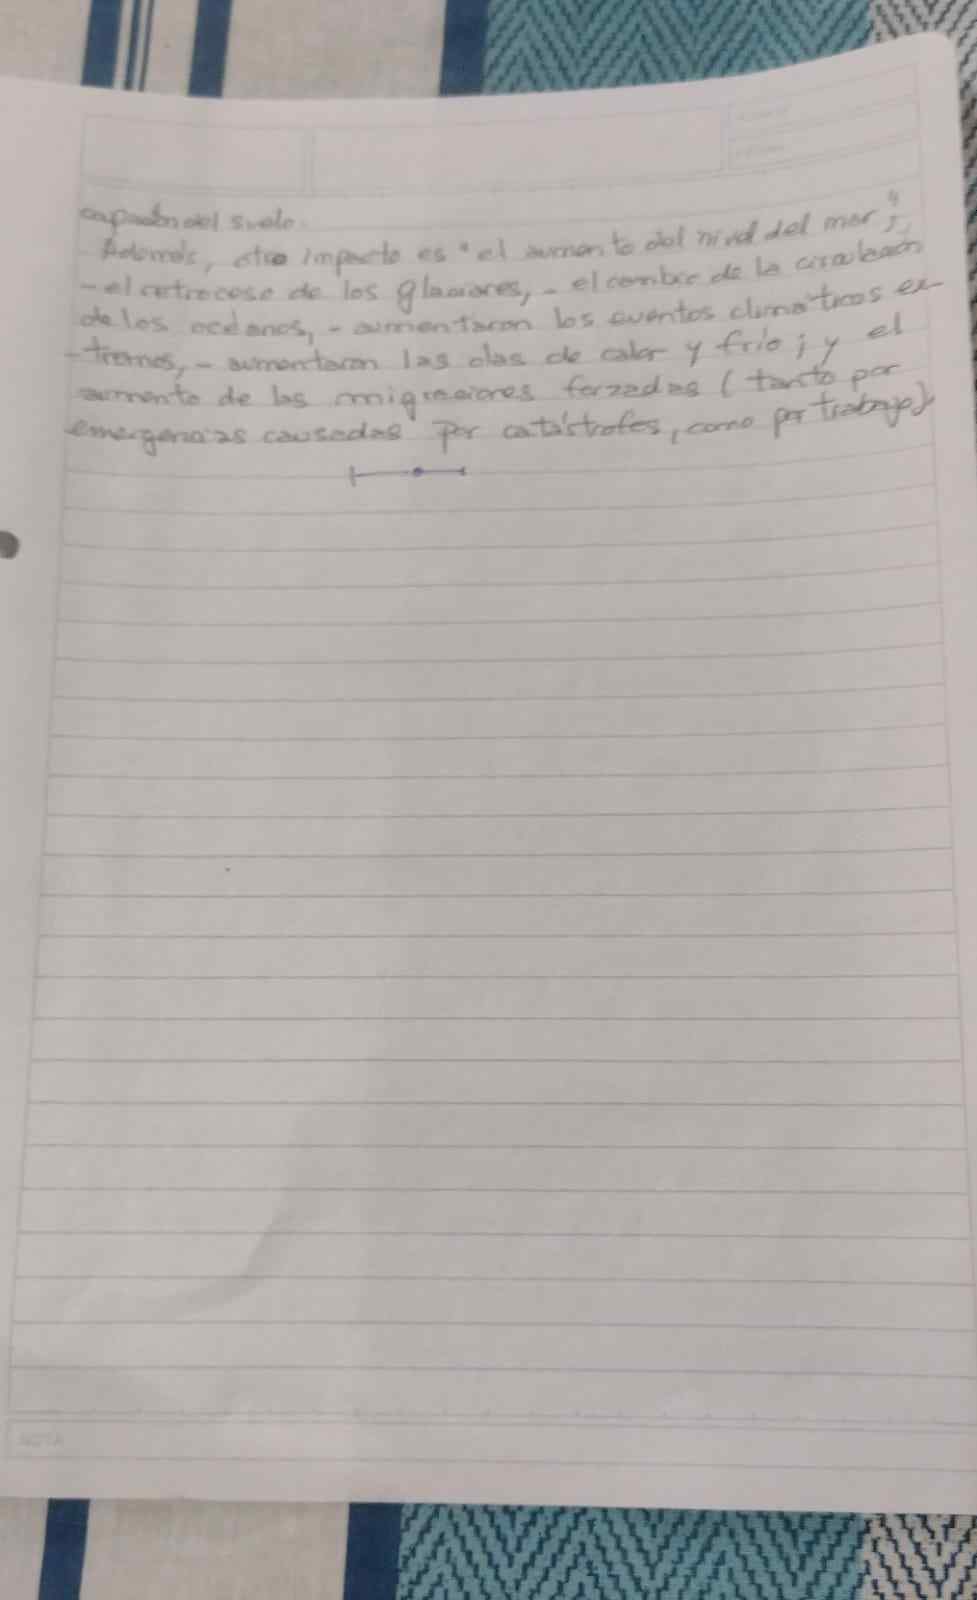 del suelo.
Además, otro impacto es "el aumento del nivel del mar";
- el retroceso de los glaciares, - el cambio de la circulación
de los océanos, - aumentaron los eventos climáticos ex-
-tremos, - aumentaron las olas de calor y frío; y el
aumento de las migraciones forzadas (tanto por
emergencias causadas por catástrofes, como por trabajo).
NOTA